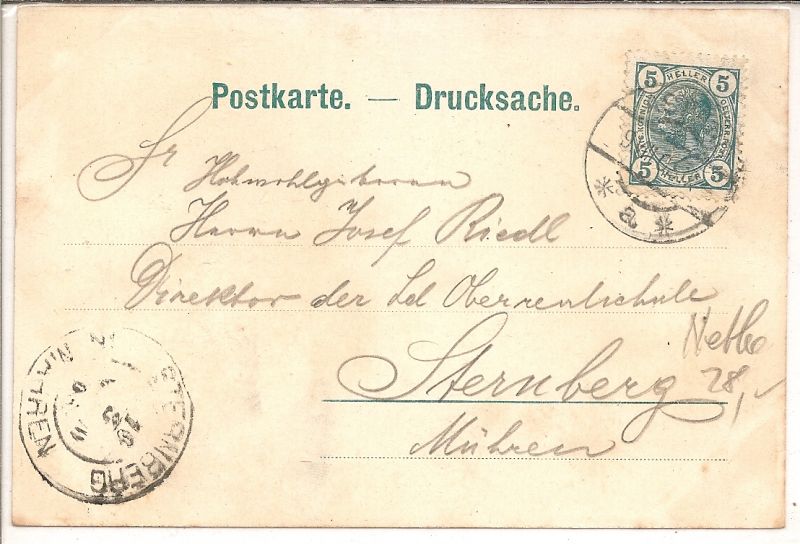 Postkarte. — Drucksache.
5 HELLER 5
5 HELLER 5
Sr
Hohwohlgeboren
Herrn Josef Riedl
Direktor der Ld Oberrealschule
Sternberg
Mähren
28,-
STERNBERG
MÄHREN